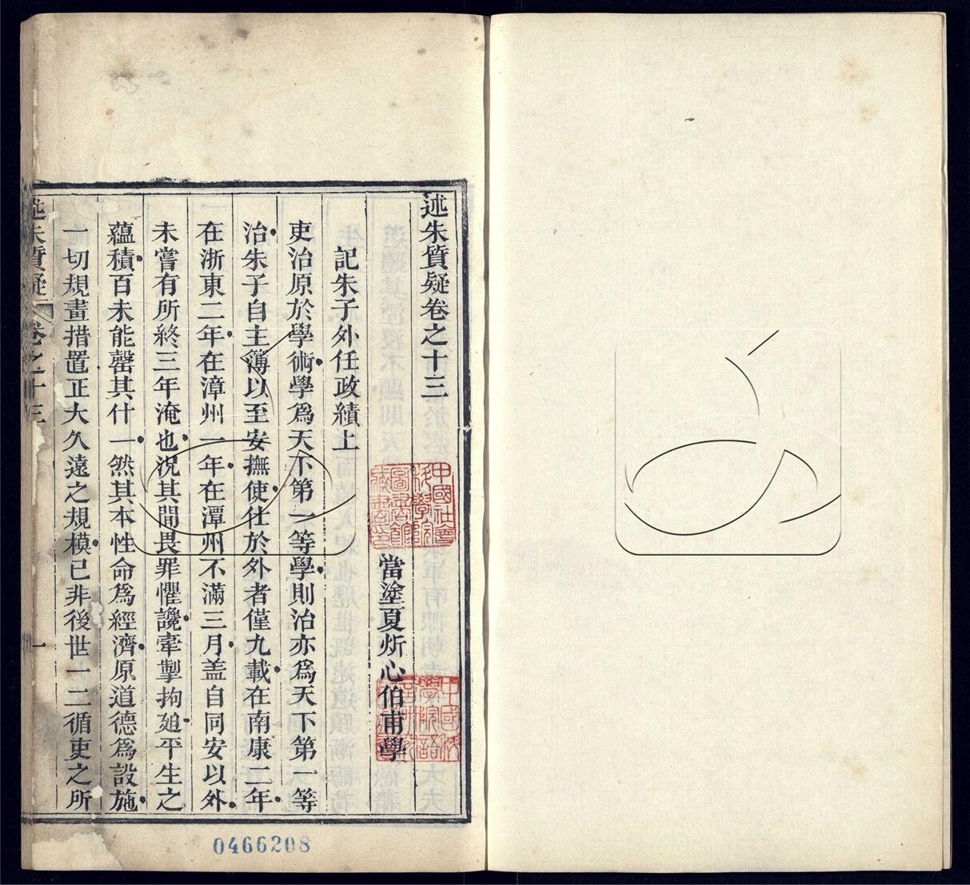 述朱質疑卷之十三
當塗夏炘心伯甫學
記朱子外任政績上
吏治原於學術學爲天下第一等學則治亦爲天下第一等
治朱子自主簿以至安撫使仕於外者僅九載在南康二年
在浙東二年在漳州一年在潭州不滿三月盖自同安以外
未嘗有所終三年淹也况其間畏罪懼讒牽掣拘𢌞平生之
蘊積百未能罄其什一然其本性命爲經濟原道德爲設施
一切規畫措置正大久遠之規模已非後世一二循吏之所
述朱質疑 卷之十三 一
中國社會科學院圖書館藏書印
0466208